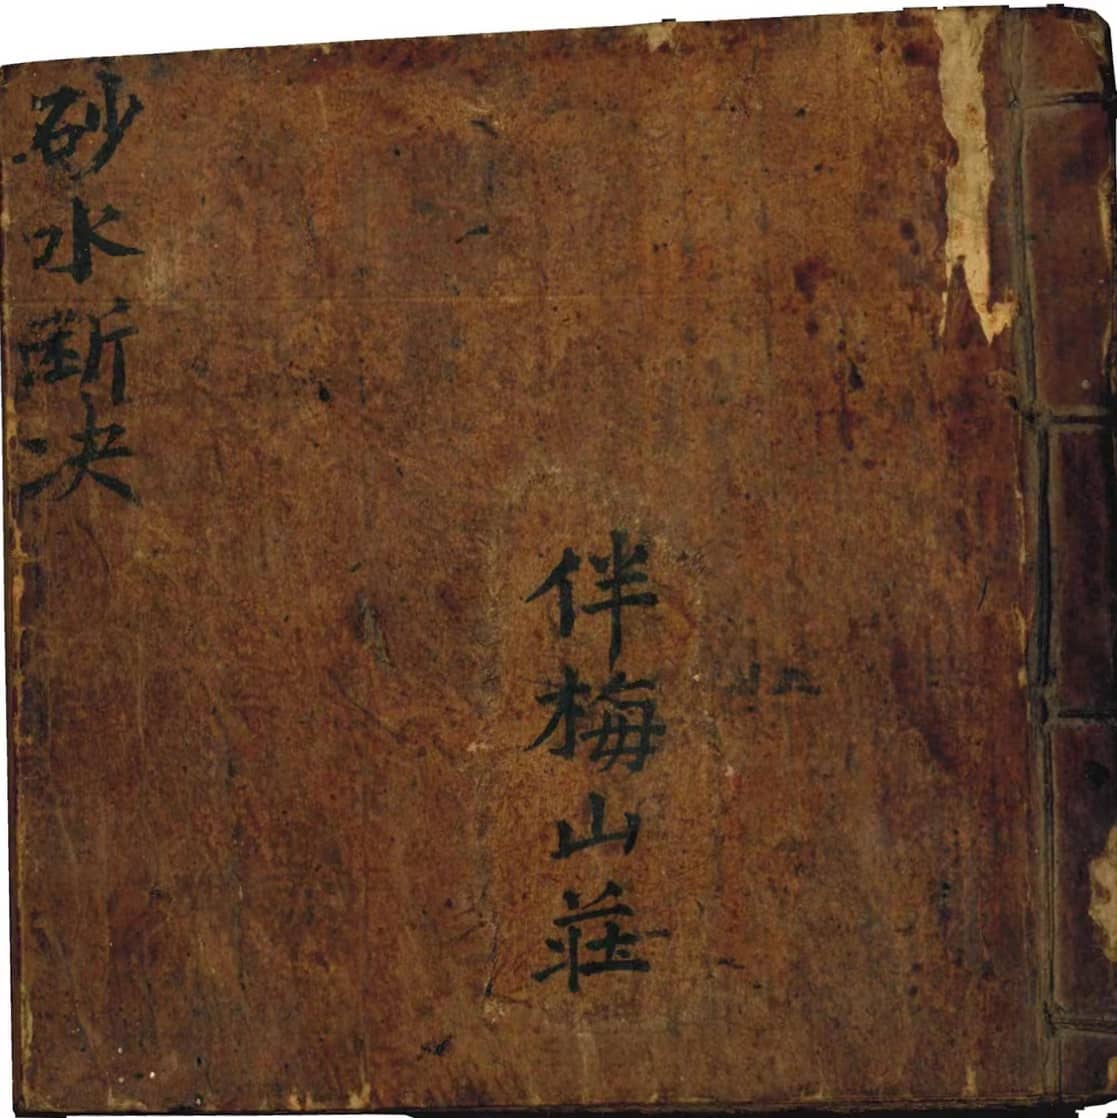 砂水斷决
伴梅山荘